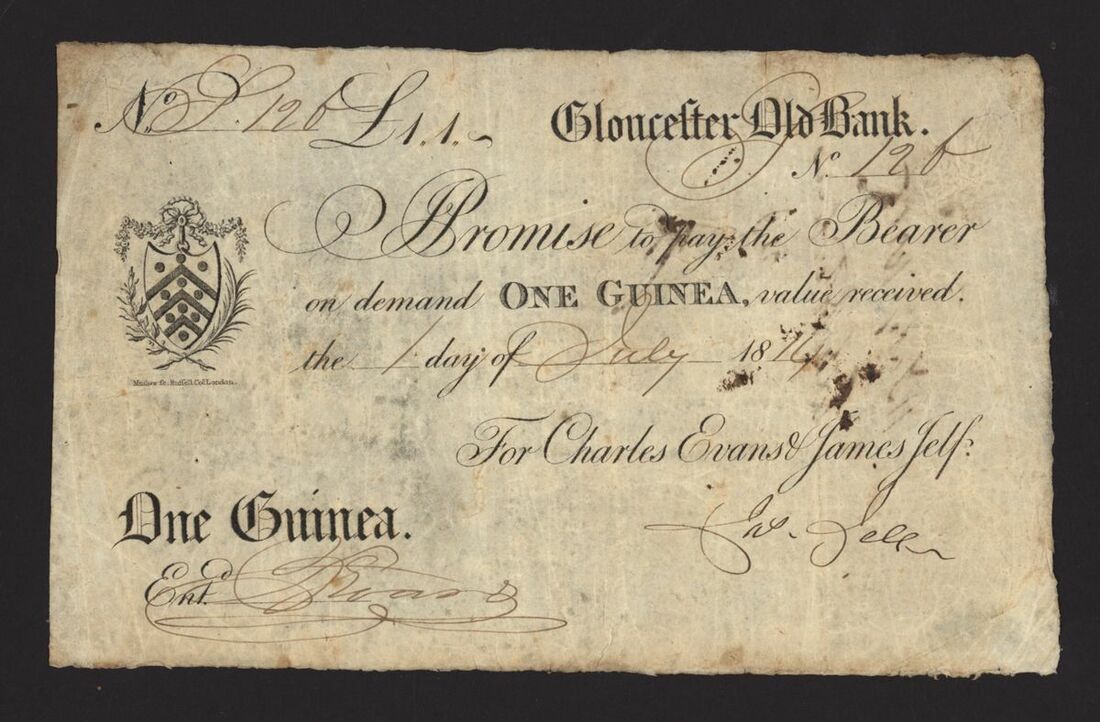 No. 126 £1.1.-
Gloucester Old Bank.
No. 126
I Promise to pay the Bearer
on demand ONE GUINEA, value received.
the 1 day of July 181
For Charles Evans & James Jelf.
One Guinea.
Jas. Jelf
Entd. Evans